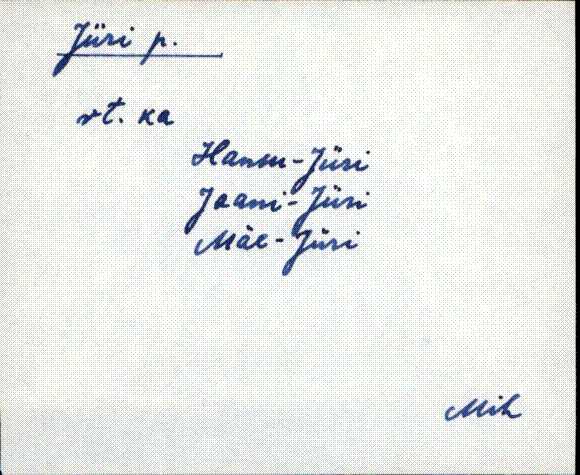 Jüri p.
vt. ka
Hansu-Jüri
Jaani-Jüri
Mäe-Jüri
Mih